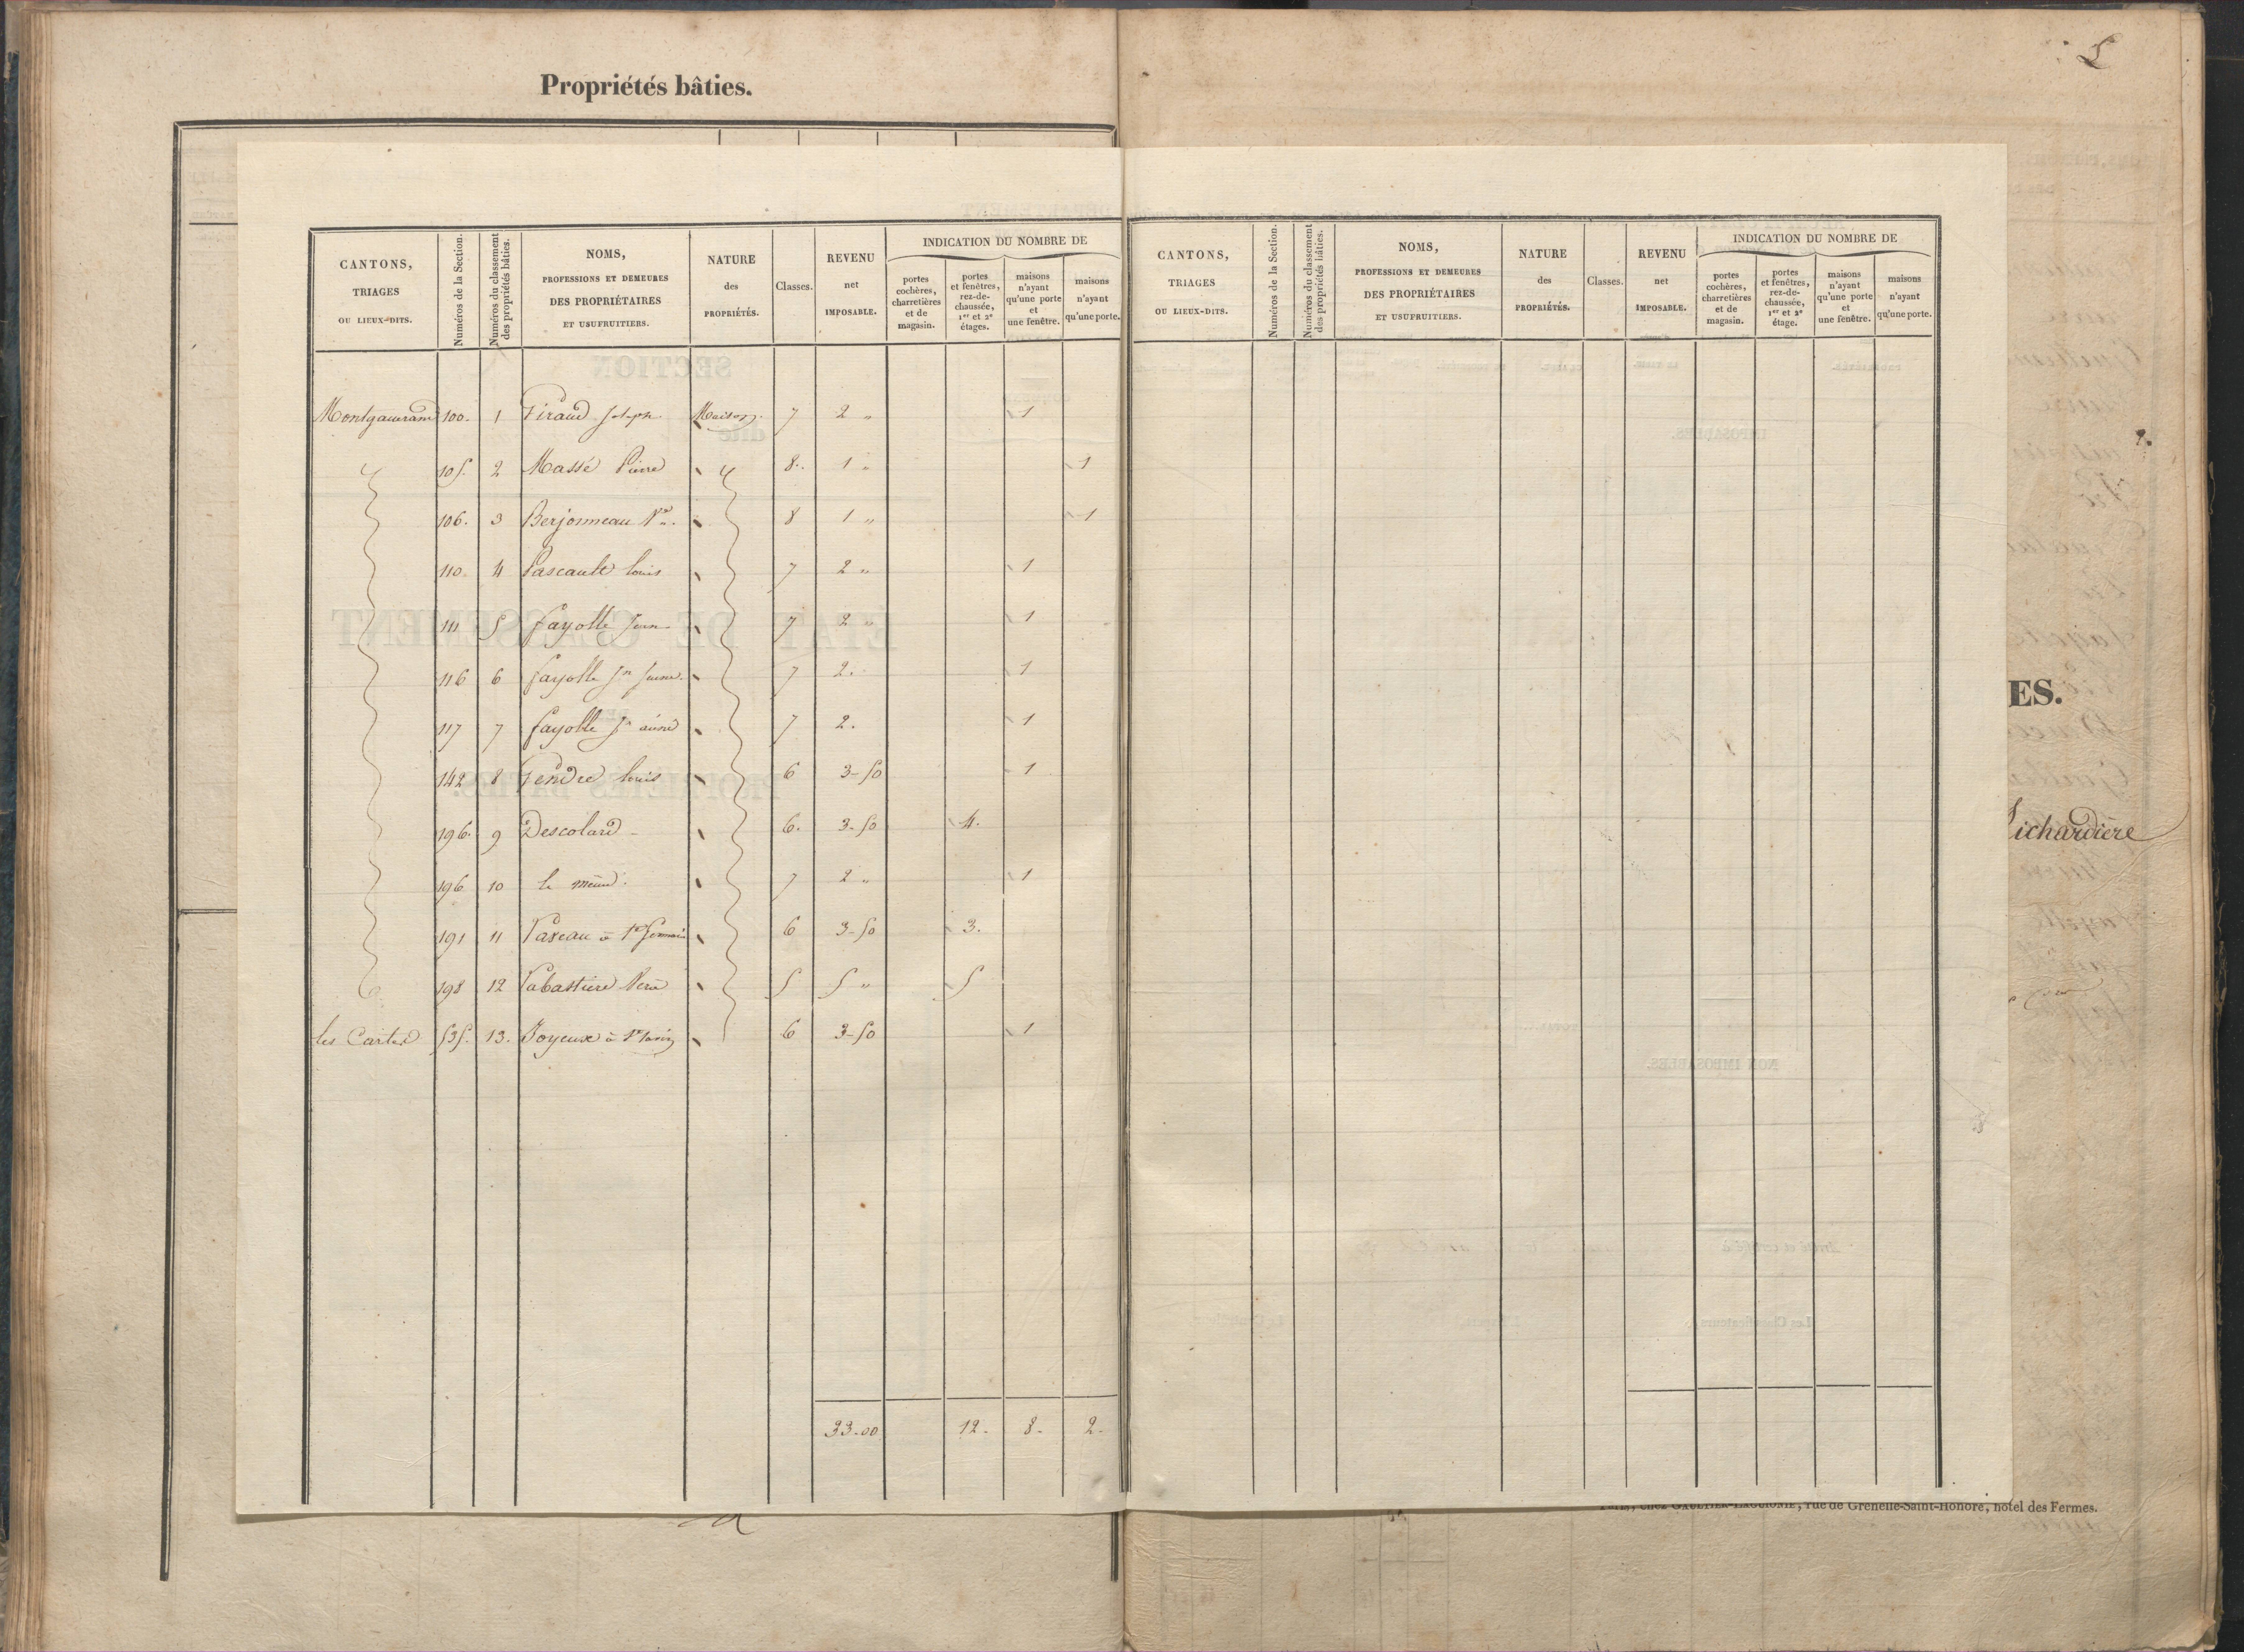 Propriétés bâties.
5
CANTONS, TRIAGES OU LIEUX-DITS. | Numéros de la Section. | Numéros du classement des propriétés bâties. | NOMS, PROFESSIONS ET DEMEURES DES PROPRIÉTAIRES ET USUFRUITIERS. | NATURE des PROPRIÉTÉS. | Classes. | REVENU net IMPOSABLE. | INDICATION DU NOMBRE DE | portes cochères, charretières et de magasin. | portes et fenêtres, rez-de-chaussée, 1er et 2e étages. | maisons n'ayant qu'une porte et une fenêtre. | maisons n'ayant qu'une porte.
Montgauran 100. 1 Giraud Joseph Maison. 7 2 " 1
105. 2 Massé Pierre 8. 1 " 1
106. 3 Berjonneau Ve. 8 1 " 1
110. 4 Pascault Louis 7 2 " 1
111 5 fayolle Jean 7 2 " 1
116 6 fayolle Jn Jeune. 7 2. 1
117 7 fayolle Jn ainé 7 2. 1
142 8 Gendre Louis 6 3-50 1
196. 9 Descolard 6. 3-50 4.
196 10 le même. 7 2 " 1
191 11 à St Germain 6 3-50 3.
198 12 5 5 " 5
les Cartes 535. 13. Joyeux à St Savin 6 3-50 1
33-00 12- 8- 2-
CANTONS, TRIAGES OU LIEUX-DITS. | Numéros de la Section. | Numéros du classement des propriétés bâties. | NOMS, PROFESSIONS ET DEMEURES DES PROPRIÉTAIRES ET USUFRUITIERS. | NATURE des PROPRIÉTÉS. | Classes. | REVENU net IMPOSABLE. | INDICATION DU NOMBRE DE | portes cochères, charretières et de magasin. | portes et fenêtres, rez-de-chaussée, 1er et 2e étage. | maisons n'ayant qu'une porte et une fenêtre. | maisons n'ayant qu'une porte.
ES.
ichardière
rue de Grenelle-Saint-Honoré, hôtel des Fermes.